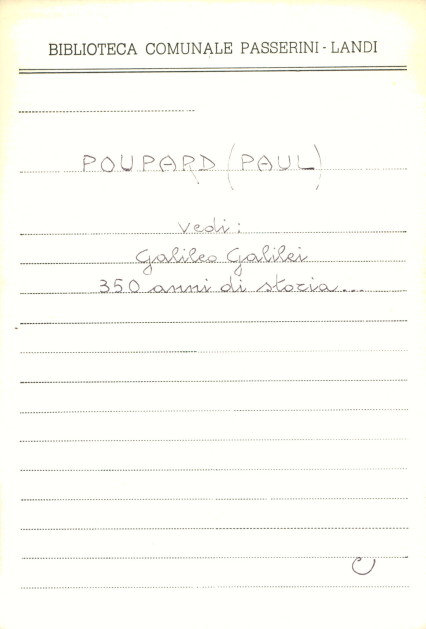 BIBLIOTECA COMUNALE PASSERINI - LANDI
POUPARD (PAUL)
Vedi:
Galileo Galilei
350 anni di storia...